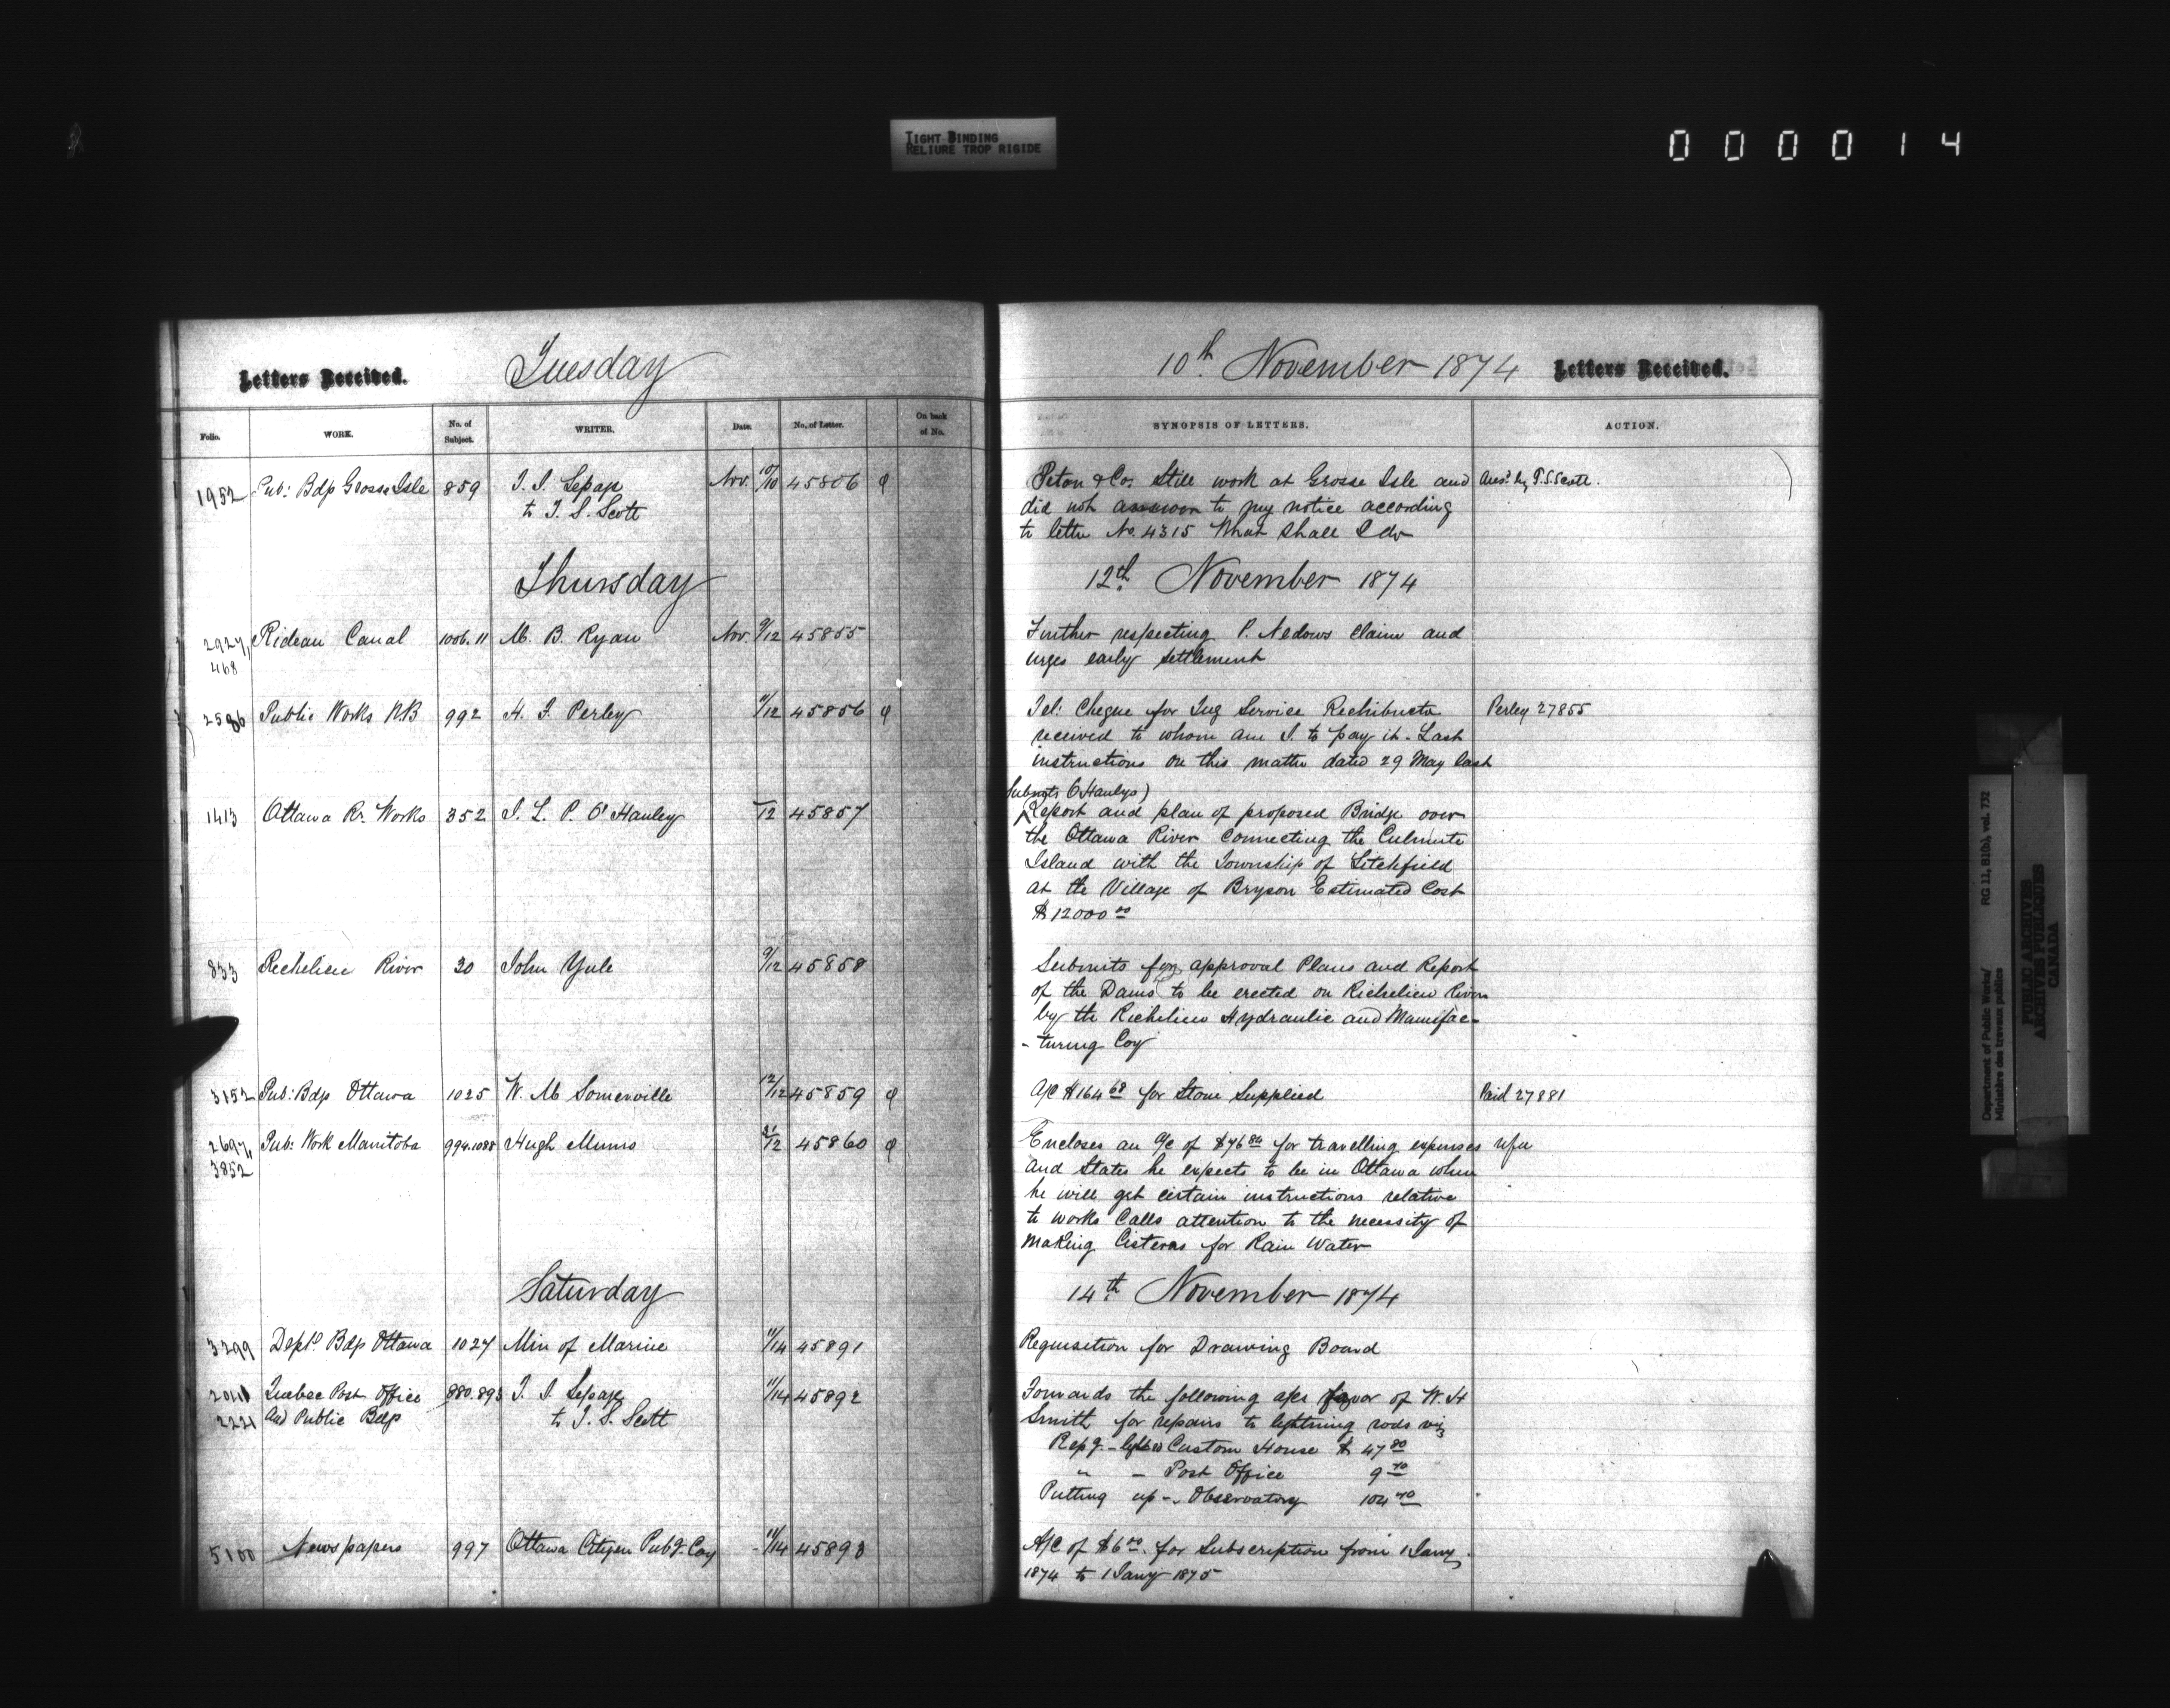 TIGHT BINDING
RELIURE TROP RIGIDE
000014
Letters Received. Tuesday 10th November 1874 Letters Received.
Folio. WORK. No. of Subject. WRITER. Date. No. of Letter. On back of No. SYNOPSIS OF LETTERS. ACTION.
1952 Pub: Bdgs Grosse Isle 859 T. S. Lepage Nov. 10/10 45806 Peton & Co. Still work at Grosse Isle and Ans'd by T.S. Scott.
to T. S. Scott did not answer to my notice according
to letter No. 4315 What shall I do
Thursday 12th November 1874
2927, Rideau Canal 1006.11 M. B. Ryan Nov. 9/12 45855 Further respecting P. Nedows claim and
468 urges early settlement
2586 Public Works NB 992 H. F. Perley 11/12 45856 Tel: Cheque for Tug Service Richibucto Perley 27855
received to whom am I to pay it - Last
instructions on this matter dated 29 May last
Submits O'Hanlys
1413 Ottawa Rr. Works 352 J. L. P. O'Hanley /12 45857 Report and plan of proposed Bridge over
the Ottawa River connecting the Calumite
Island with the Township of Litchfield
at the Village of Bryson Estimated Cost
$12000 00
833 Richelieu River 30 John Yule 9/12 45858 Submits for approval Plans and Report
of the Dams to be erected on Richelieu River
by the Richelieu Hydraulic and Manufac-
-turing Coy
3152 Pub: Bdgs Ottawa 1025 W. M Somerville 12/12 45859 A/C $164 68 for Stone Supplied Paid 27881
2697, Pub: Work Manitoba 994.1088 Hugh Munro 31/12 45860 Encloses an a/c of $76 80 for travelling expenses
3852 and States he expects to be in Ottawa when
he will get certain instructions relative
to works Calls attention to the necessity of
making Cisterns for Rain Water
Saturday 14th November 1874
3299 Deptl Bdgs Ottawa 1027 Min of Marine 11/14 45891 Requisition for Drawing Board
Quebec Post Office 880.893 T. S. Lepage 11/14 45892 Forwards the following a/cs favor of W. H
2221 And Public Bdgs to T. S. Scott Smith for repairs to lightning rods viz
Repg - Custom House $ 47 80
" - Post Office 9 70
Putting up - Observatory 104 70
5100 Newspapers 997 Ottawa Citizen Pubg. Coy 11/14 45893 A/C of $6 00. for Subscription from 1 Jany
1874 to 1 Jany 1875
Department of Public Works/ RG 11, B1(b), vol. 732
Ministère des travaux publics
PUBLIC ARCHIVES
ARCHIVES PUBLIQUES
CANADA